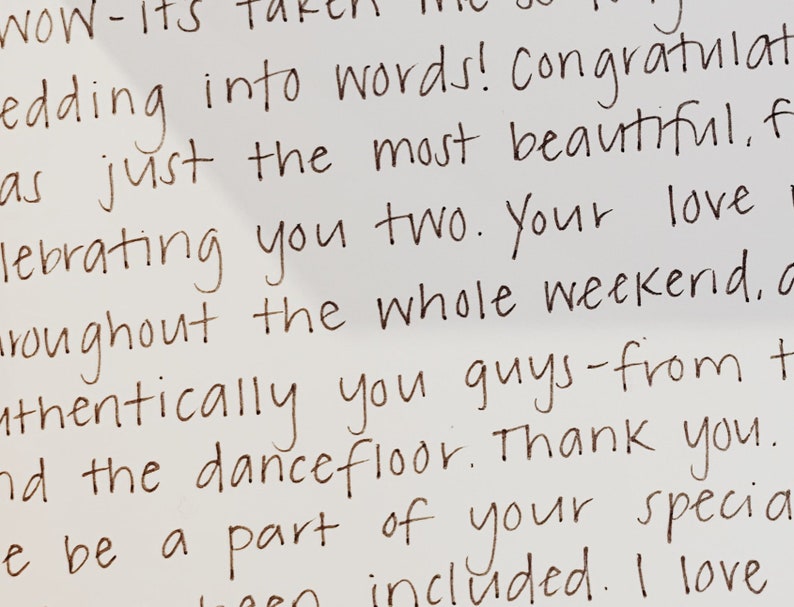 WOW-its taken me so
edding into words! Congratulat
as just the most beautiful, f
lebrating you two. Your love
roughout the whole weekend, a
uthentically you guys-from t
nd the dancefloor. Thank you.
e be a part of your specia
been included. I love